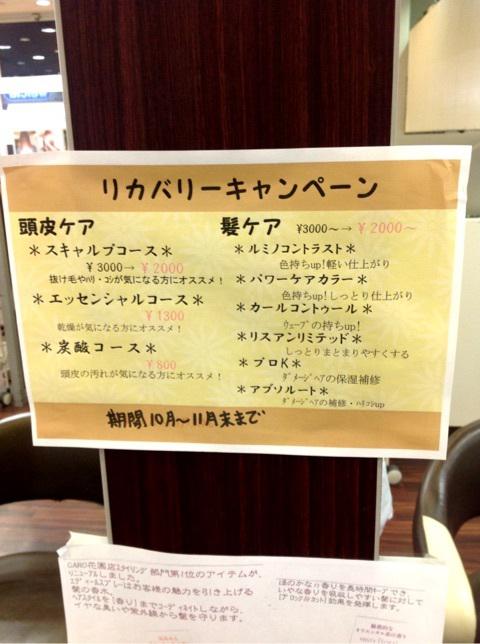 リカバリーキャンペーン
頭皮ケア
＊スキャルプコース＊
¥3000→¥2000
抜け毛やハリ・コシが気になる方にオススメ！
＊エッセンシャルコース＊
¥1300
乾燥が気になる方にオススメ！
＊炭酸コース＊
¥800
頭皮の汚れが気になる方にオススメ！
髪ケア ¥3000～→¥2000～
＊ルミノコントラスト＊
色持ちup!軽い仕上がり
＊パワーケアカラー＊
色持ちup!しっとり仕上がり
＊カールコントゥール＊
ウェーブの持ち up!
＊リスアンリミテッド＊
しっとりまとまりやすくする
＊プロK＊
ダメージヘアの保湿補修
＊アブソルート＊
ダメージヘアの補修・ハリコシup
期間10月～11月末まで
GARO花園店スタイリング部門第1位のアイテムが、
リニューアルしました。
エディールスプレーはお客様の魅力を引き上げる
髪の香水。
ヘアスタイルを「香り」までコーディネイトしながら、
イヤな臭いや紫外線から髪を守ります。
ほのかな香りを長時間キープでき、
いやな香りを吸収しやすい髪に対して